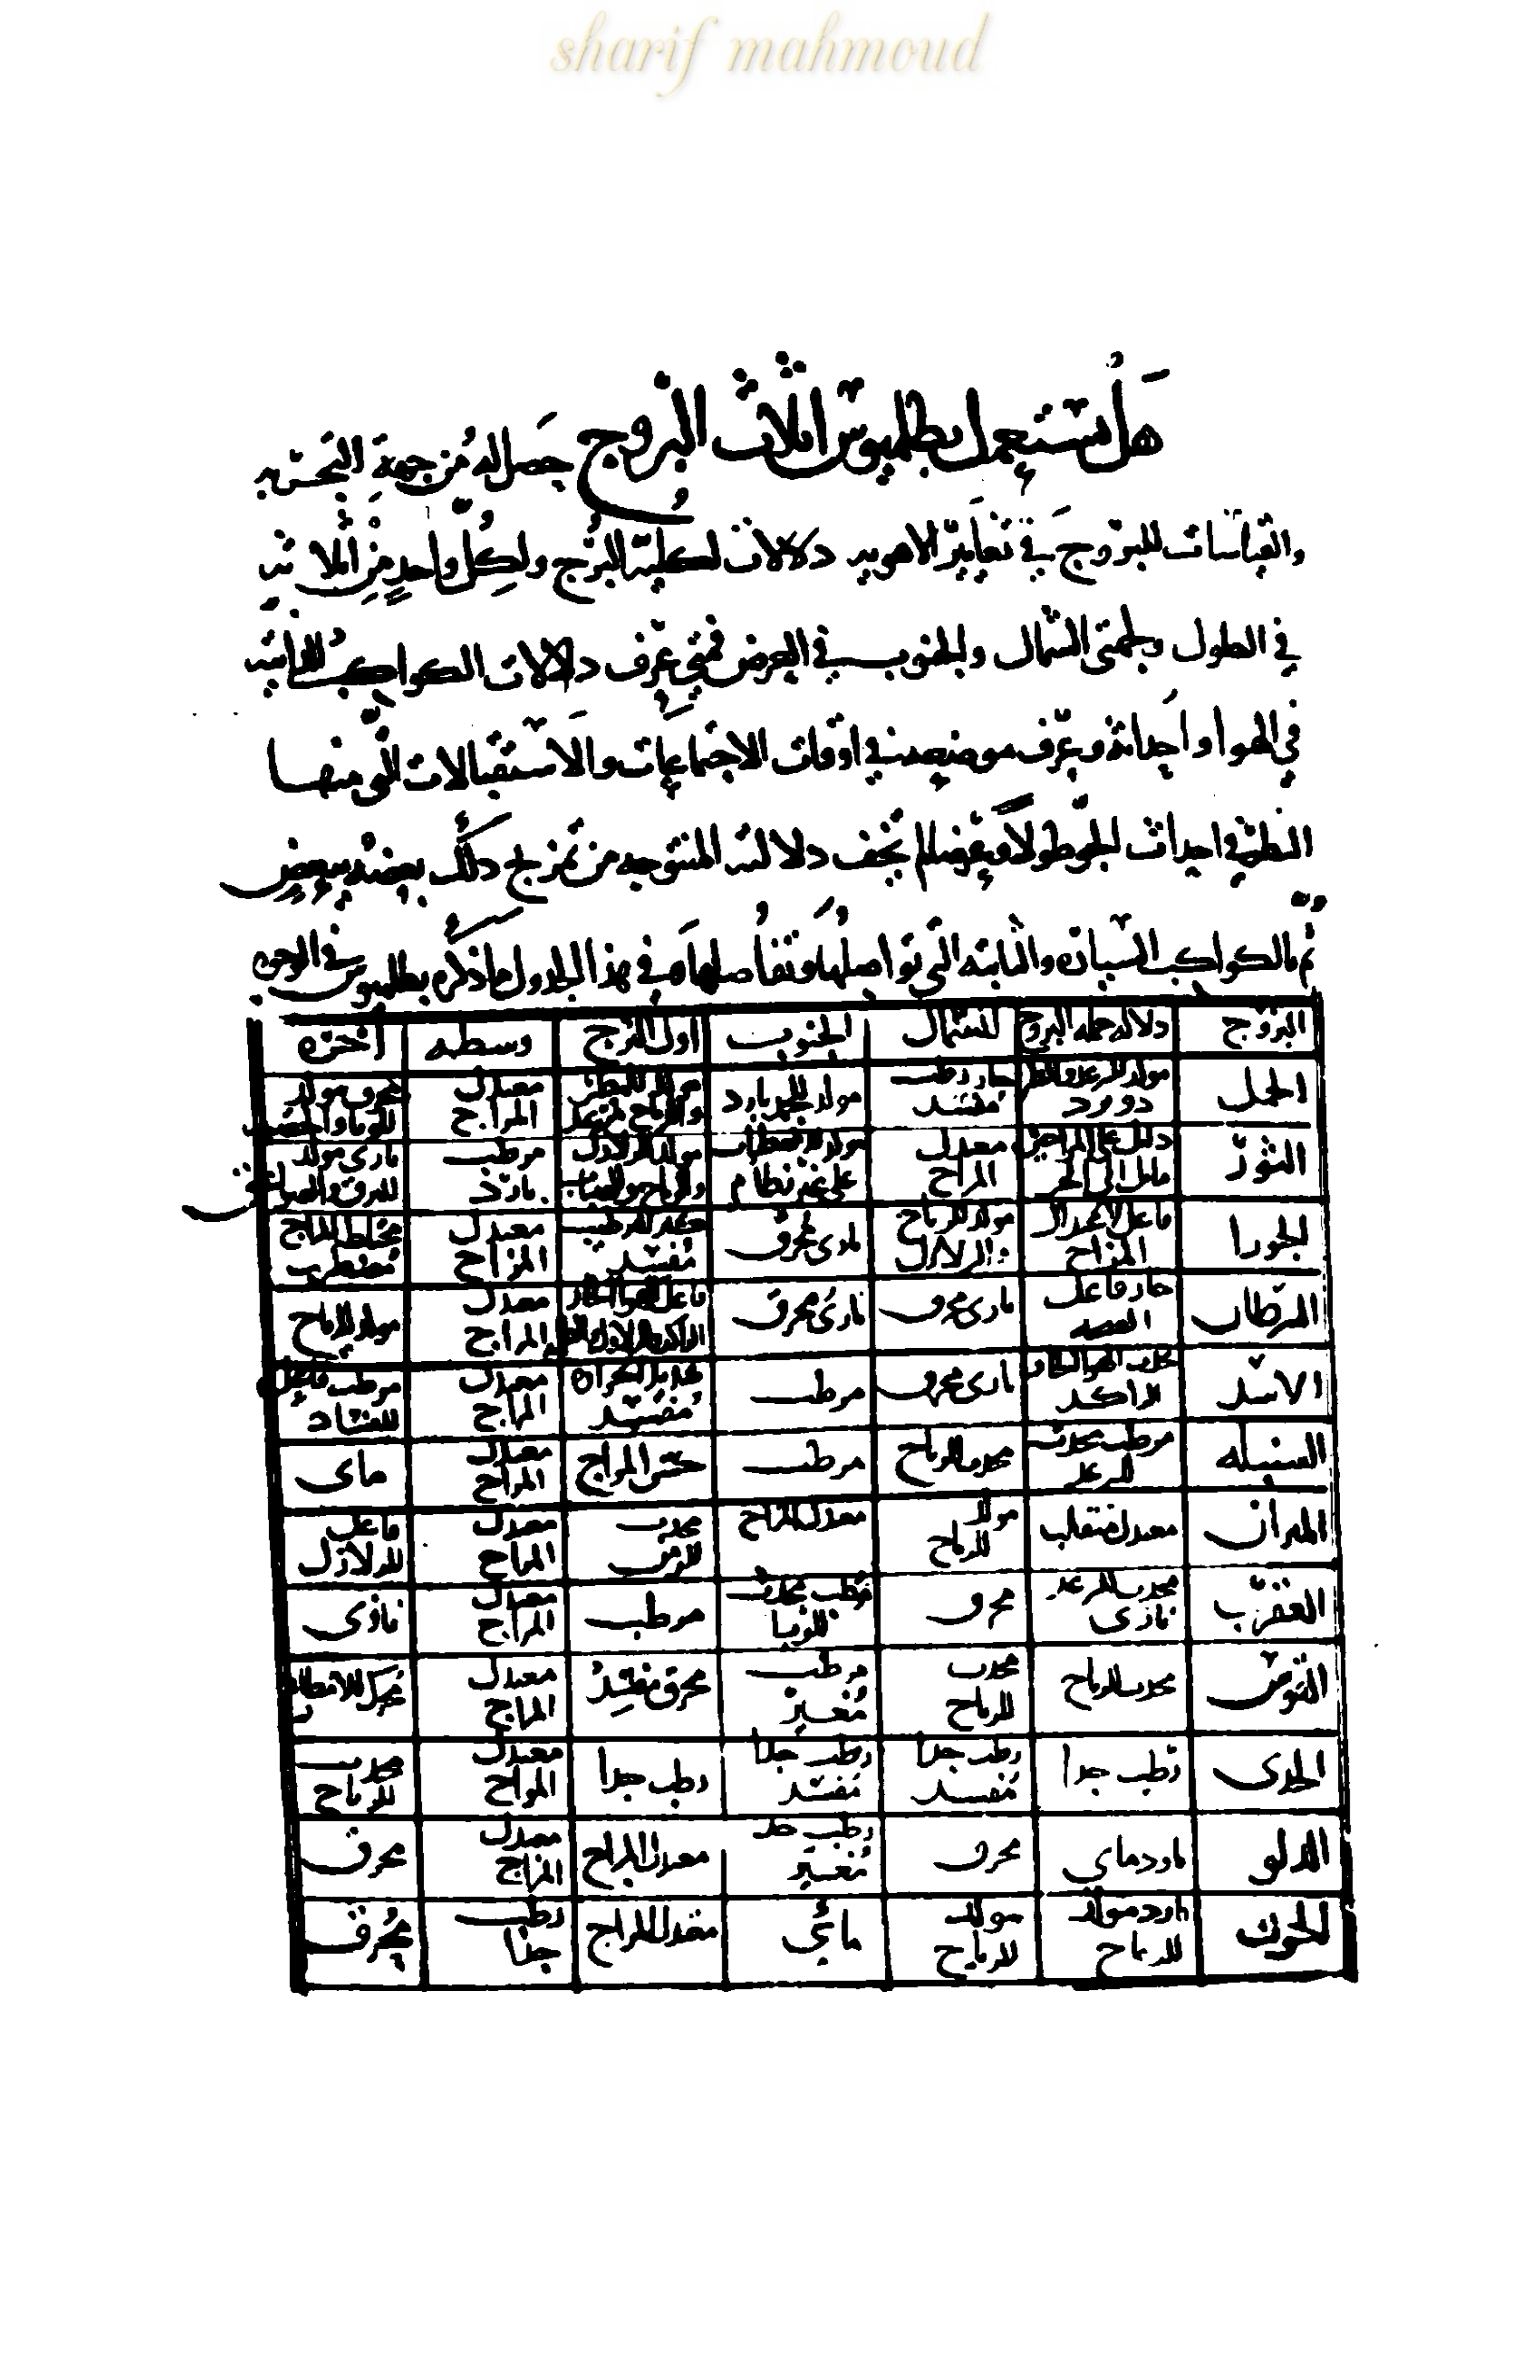 sharif mahmoud
هل يستعمل بطلميوس اثلاث البروج حصل له من جهة التجربة
والقياسات للبروج في تغايير الاهوية دلالات لكلية البرج ولكل واحد من اثلاثه
في الطول ولجهتي الشمال والجنوب في العرض فمتى عرف دلالات الكواكب
في الهوا واحداثه وعرف موضعه في اوقات الاجتماعات والاستقبالات التي منها
النظر في احداث الجو طولا وعرضا لم تخف دلالته من تمزيج ذلك بعضه ببعض
ثم بالكواكب السيارة والثابتة التي تواصلها وتفاصلها وفي هذا الجدول ما ذكره بطلميوس في الوجوه
البروج دلالة جملة البروج الشمال الجنوب اول البرج وسطه اخره
الحمل مولد للرعد والمطر ذو برد حار رطب مفسد مولد بارد معتدل المزاج محرق مولد للوبا
الثور دليل على المزاجين مايل الى الحر معتدل المزاج على غير نظام مولد الزلازل والرياح والضباب مرطب بارد ناري مولد للبرق والصواعق
الجوزا فاعل لاعتدال المزاج مولد للرياح والزلازل ناري محرق مرطب مفسد معتدل المزاج مختلط المزاج مضطرب
السرطان حار فاعل ناري محرق ناري محرق معتدل المزاج مولد للرياح
الاسد الراكد ناري محرق مرطب مفسد معتدل المزاج مرطب فاعل للفساد
السنبله مرطب محدث للرعد محدث للرياح مرطب حسن المزاج معتدل المزاج ماى
الميزان معتدل متقلب مولد للرياح معتدل المزاج محدث معتدل المزاج فاعل للزلازل
العقرب محدث للرعد ناري محرق للوبا مرطب معتدل المزاج ناري
القوس محدث للرياح محدث للرياح مرطب مغير محرق مفسد معتدل المزاج محرك للامطار
الجدى رطب جدا رطب جدا مفسد رطب جدا مفسد رطب جدا معتدل المزاج محدث للرياح
الدلو بارد ماى محرق رطب جدا مغير معتدل المزاج معتدل المزاج محرق
الحوت بارد مولد للرياح مولد للرياح مائى معتدل المزاج رطب جدا محرق